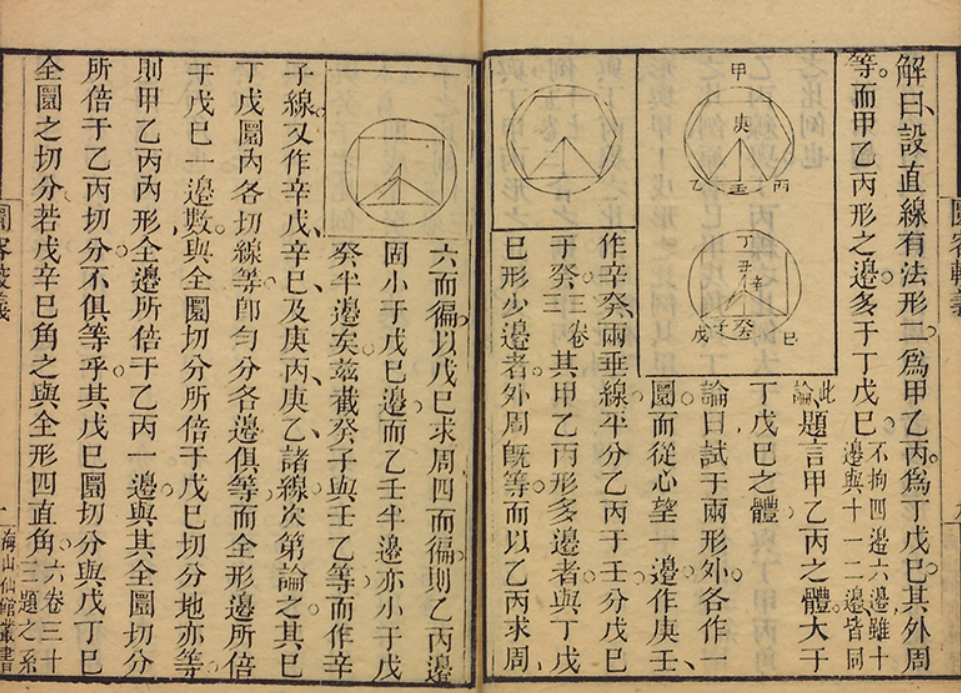 解曰設直線有法形二爲甲乙丙爲丁戊巳其外周
等而甲乙丙形之邊多于丁戊巳
不拘四邊六邊雖十
邊與十一二邊皆同
此題言甲乙丙之體大于
丁戊巳之體
論曰試于兩形外各作一
圜而從心望一邊作庚壬
作辛癸兩垂線平分乙丙于壬分戊巳
于癸
三卷
三
其甲乙丙形多邊者與丁戊
巳形少邊者外周旣等而以乙丙求周
甲
庚
乙
壬
丙
丁
丑
辛
戊
子
癸
巳
圜容較義
六而徧以戊巳求周四而徧則乙丙邊
固小于戊巳邊而乙壬半邊亦小于戊
癸半邊矣茲截癸子與壬乙等而作辛
子線又作辛戊辛巳及庚丙庚乙諸線次第論之其巳
丁戊圜內各切線等卽勻分各邊俱等而全形邊所倍
于戊巳一邊數與全圜切分所倍于戊巳切分地亦等
則甲乙丙內形全邊所倍于乙丙一邊與其全圜切分
所倍于乙丙切分不俱等乎其戊巳圜切分與戊丁巳
全圜之切分若戊辛巳角之與全形四直角
六卷三十
三題之系
圜容較義
海山仙館叢書